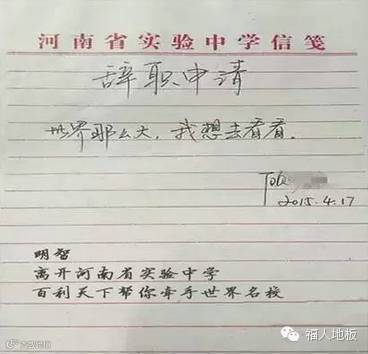 河南省实验中学信笺
辞职申请
世界那么大，我想去看看。
2015.4.17
明智
离开河南省实验中学
百利天下帮你牵手世界名校
福人地板